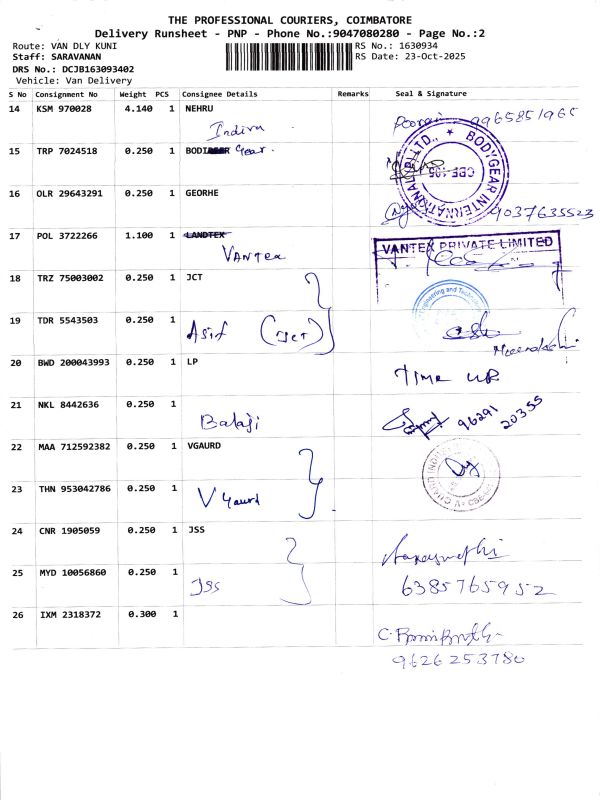 THE PROFESSIONAL COURIERS, COIMBATORE
Delivery Runsheet - PNP - Phone No.:9047080280 - Page No.:2
Route: VAN DLY KUNI
Staff: SARAVANAN
DRS No.: DCJB163093402
Vehicle: Van Delivery
RS No.: 1630934
RS Date: 23-Oct-2025
S No Consignment No Weight PCS Consignee Details Remarks Seal & Signature
14 KSM 970028 4.140 1 NEHRU
Indira 9965851965
15 TRP 7024518 0.250 1 BODI Gear.
BODYGEAR INTERNATIONAL (P) LTD.,
CBE-105
16 OLR 29643291 0.250 1 GEORHE
9037635523
17 POL 3722266 1.100 1 LANDTEX
Vantex
VANTEX PRIVATE LIMITED
18 TRZ 75003002 0.250 1 JCT
Engineering and Technology
19 TDR 5543503 0.250 1
Asif (JCT)
Meenakshi
20 BWD 200043993 0.250 1 LP
Time up
21 NKL 8442636 0.250 1
Balaji
96291 20355
22 MAA 712592382 0.250 1 VGAURD
23 THN 953042786 0.250 1
V Gaurd
24 CNR 1905059 0.250 1 JSS
25 MYD 10056860 0.250 1
JSS 6385765952
26 IXM 2318372 0.300 1
9626253780